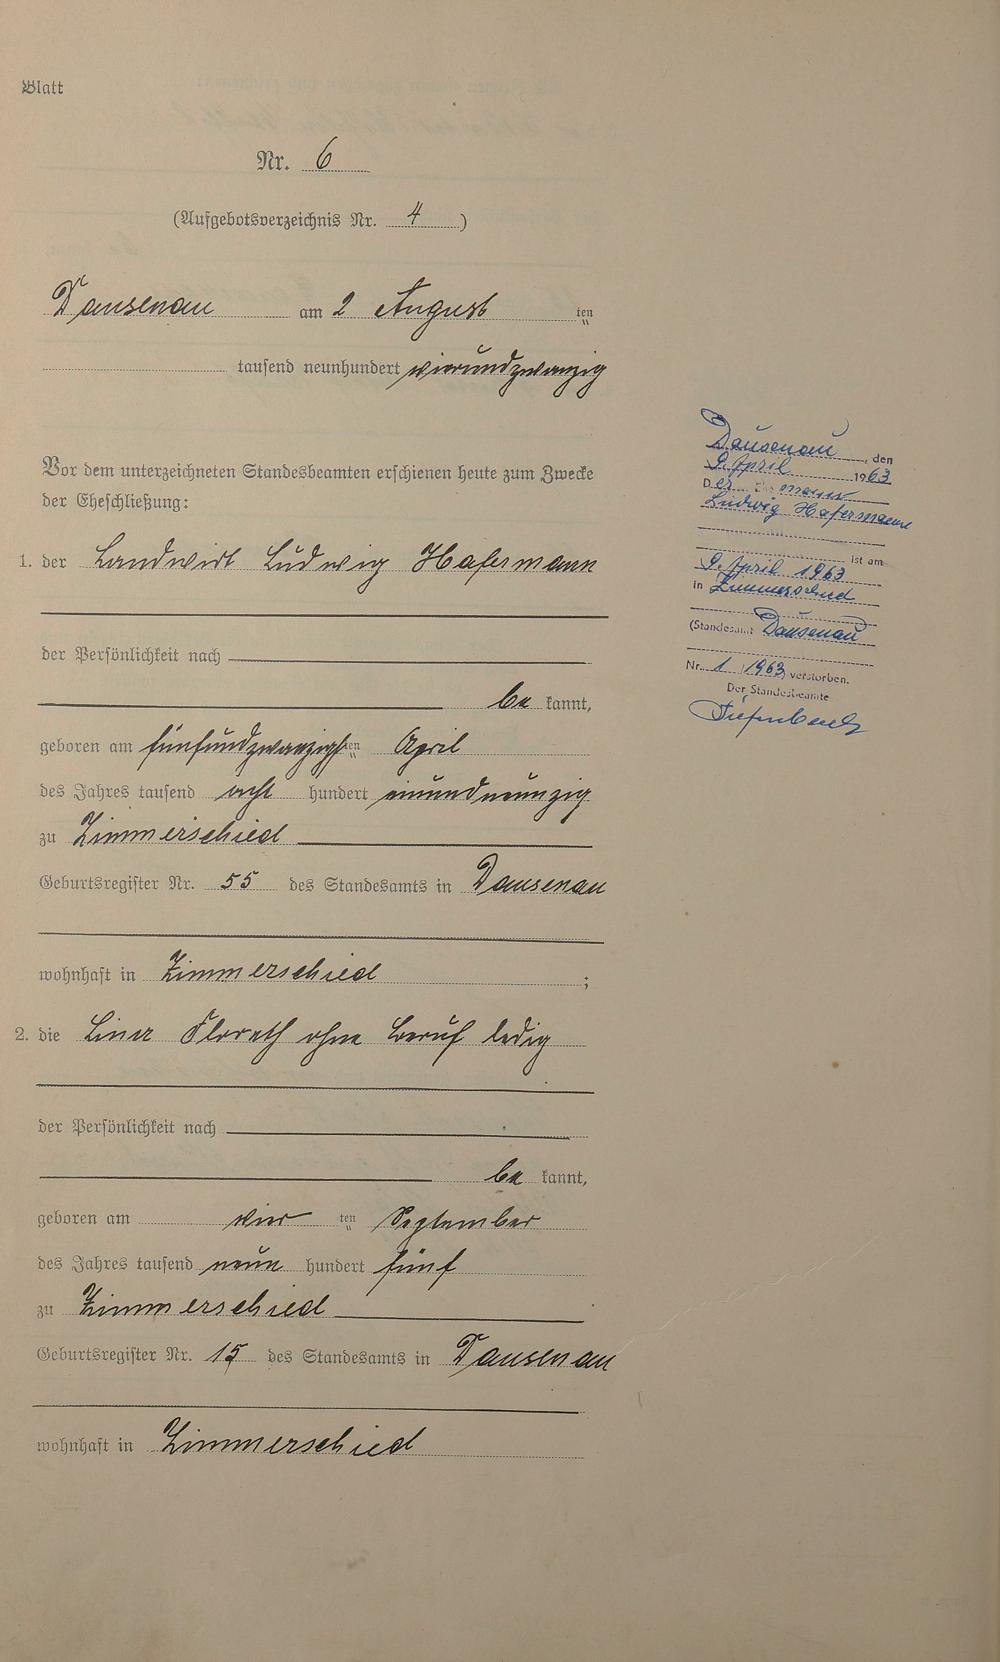 Blatt
Nr. 6
(Aufgebotsverzeichnis Nr. 4 )
Dausenau am 2 August ten
tausend neunhundert vierundzwanzig
Vor dem unterzeichneten Standesbeamten erschienen heute zum Zwecke
der Eheschließung:
1. der Landwirt Ludwig Hafermann
der Persönlichkeit nach
be kannt,
geboren am fünfundzwanzigsten April
des Jahres tausend acht hundert einundneunzig
zu Zimmerschied
Geburtsregister Nr. 55 des Standesamts in Dausenau
wohnhaft in Zimmerschied ;
2. die Lina Florath ohne Beruf ledig
der Persönlichkeit nach
be kannt,
geboren am vier ten September
des Jahres tausend neun hundert fünf
zu Zimmerschied
Geburtsregister Nr. 15 des Standesamts in Dausenau
wohnhaft in Zimmerschied
Dausenau, den
9. April 1963
Der Ehemann
Ludwig Hafermann
ist am
9. April 1963
in Zimmerschied
(Standesamt Dausenau
Nr. 1/1963) verstorben.
Der Standesbeamte